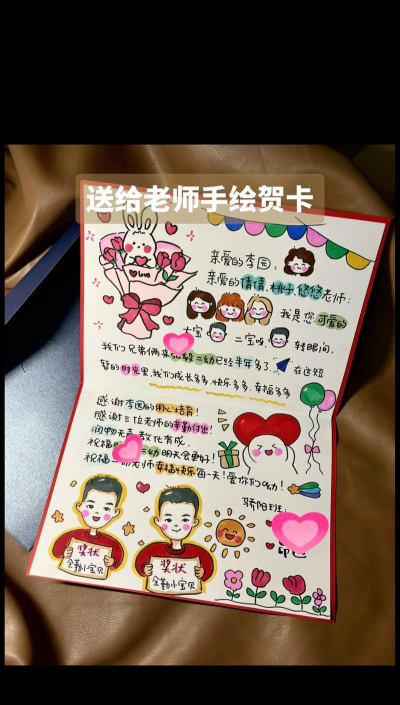 送给老师手绘贺卡
love
亲爱的李园：
亲爱的倩倩、桃子、悠悠老师：
我是您可爱的
大宝 二宝呀， 转眼间，
我们兄弟俩来 二幼已经半年多了， 在这短
暂的时光里，我们成长多多，快乐多多，幸福多多
感谢李园的用心培育！
感谢三位老师的辛勤付出！
润物无声，教化有成，
祝福 二幼明天会更好！
祝福 幼老师幸福快乐每一天！爱你们呦！
骄阳班：
奖状
全勤小宝贝
奖状
全勤小宝贝